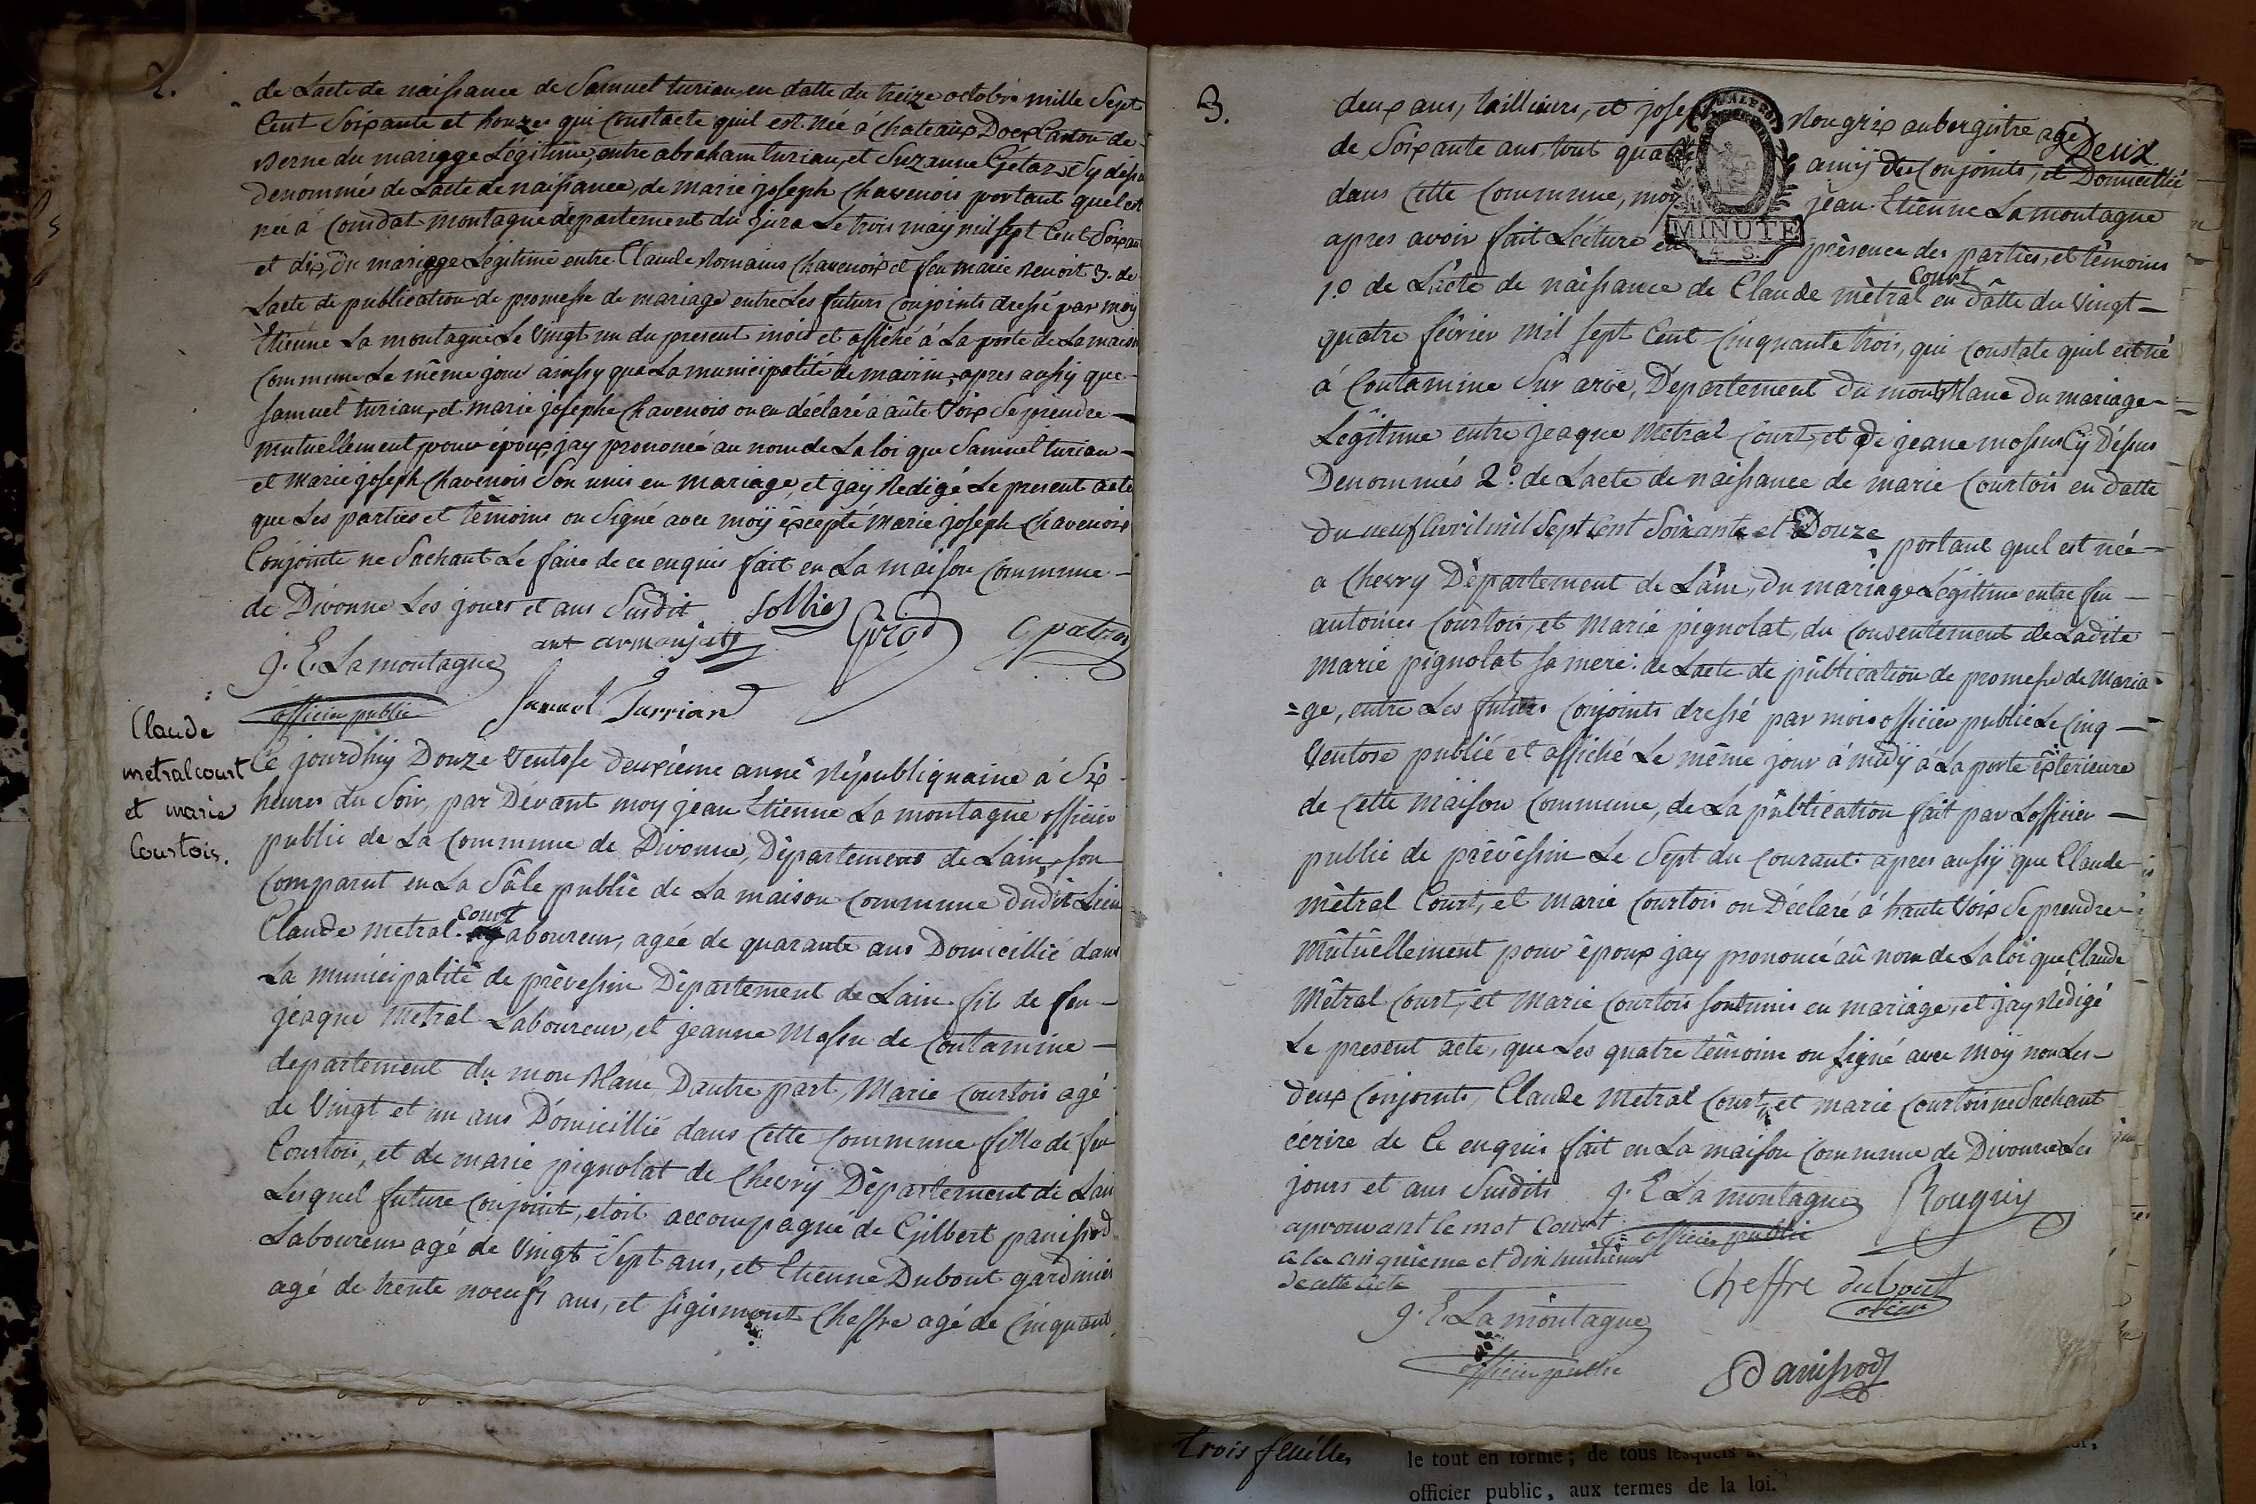 2.
de Lacte de naissance de Samuel turian, en datte du treize octobre mille Sept
Cent Soixante et honze qui constacte quil est née á chateaux Doex Canton de
Berne du mariagge Légitime, entre abraham turian, et Suzanne Gétaz Cy dessu
denommés de Lacte de naissance, de marie joseph chavenois portant quel est
née á Condat montagne departement du jura Le trois may mil sept Cent Soixan
et dix, du mariagge Légitime entre Claude Romains Chavenois et feu marie Renoit 3. de
Lacte de publication de promesse de mariage entre Les futurs Conjoints dressé par moy
Etienne La montagne Le Vingt un du present mois et affiché á La porte de La maison
Commune Le même jour ainssy que La municipalité de mairin, apres aussy que
Samuel turian, et marie josephe Chavenois on en déclaré á aûte Voix Se prendre
mutuellement pour époux jay prononcé au nom de La loi que Samuel turian
et Marie joseph Chavenois Son unis en mariage, et jaÿ Redigé Le present acte
que Les parties et têmoins on Signé avec moÿ êxcepté Marie joseph Chavenois
Conjointe ne Sachant Le faire de ce enquis fait en La maison Commune
de Divonne Les jours et ans Susdit Sollier
ant armanjatt Girod C patron
j. E. La montagne
officier public Samuel Turrian
Claude
metral court
et marie
Courtois.
Ce jourdhuy Douze Ventosse deuxième anné Républiquaine á Six
heures du Soir, par Dévant moy jean Etienne La montagne officier
public de La Commune de Divonne, Département de Lain, son
Comparut en La Sâle publiê de La maison Commune dudit Lieu
court
Claude metral Laboureur, agée de quarante ans Domicillié dans
La municipalitê de prèvessin Dèpartement de Lain fils de feu
jeaque Metral Laboureur, et jeanne Mossu de Contamine
departement du mon Blanc Dautre part, Marie Courtois agé
de Vingt et un ans Domicillié dans Cette Commune fille de feu
Courtois, et de marie pignolat de Chevrÿ Département de Lain
Lesquel future Conjoint, etoit accompagné de Gilbert panissod
Laboureur agé de Vingt Sept ans, et Etienne Dubout gardinier
agé de trente noeufs ans, et sigismont Cheffre agé de Cinquant
3.
deux ans, tailliaurs, et joseph Rougrix aubergistre agé
Deux
de Soixante ans, tout quatre amÿ des Conjoints, et Domicillié
dans Cette Commune, moy jean Etienne La montagne
apres avoir fait Léiture en présence des parties, et têmoins
MINUTE
4. S.
Court
1.º de Lácte de naissance de Claude mètral en dâtte du Vingt
quatre février mil sept Cent Cinquante trois, qui constate quil est né
á Contamine Sur arve, Département du mont Blanc du mariage
Légitime entre jeaque Metral Court, et de jeane mossu Cy Déssus
Denommés 2.º de Lacte de naissance de marie Courtois en datte
du neuf Avril mil Sept Cent Soixante et Douze portant quel est née
a Chevry Département de Lâin, du mariage Légitime entre feu
antoines Courtois, et Marie pignolat, du Consentement de Ladite
Marie pignolat sa mere: de Lacte de pûblication de promesse de Maria
=ge, entre Les futurs Conjoints dressé par mois officier public Le Cinq
Ventose publié et affiché Le même jour á mÿdi á La porte êxterieure
de Cette maison Commune, de La pûblication fait par Lofficier
public de prévessin Le Sept du Courant: apres aussÿ que Claude
mètral Court, et Marie Courtois on Déclaré á haute Voix Se prendre
Mûtûellement pour époux jay prononcé aû nom de La loi que Claude
Mêtral Court, et Marie Courtois sont unis en mariage, et jay Rédigé
Le present acte, que Les quatre têmoins on Signé avec moÿ non Les
deux Conjoints, Claude Metral Court, et marie Courtois ne Sachant
écrire de Ce enquis fait en La maison Commune de Divonne Les
jours et ans Susdits j. E La montagne Rougrix
aprouvant le mot Court officier public
a la cinquième et dixhuitième
de cette Acte
Cheffre dubout
j. E. La montagne
officier public
Panissod
trois feuilles
le tout en forme; de tous lesquels
officier public, aux termes de la loi.